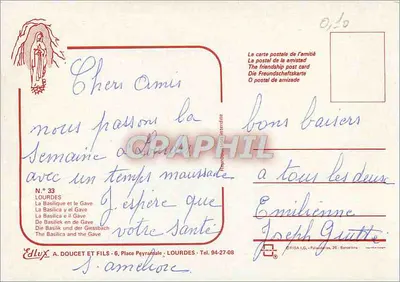 0,10
Chers amis
nous passons la
semaine a
avec un temps maussade
J'espère que
votre santé
s'améliore
bons baisers
a tous les deux
Emilienne
Joseph
La carte postale de l'amitié
La postal de la amistad
The friendship post card
Die Freundschaftskarte
O postal de amizade
CPAPHIL
N.° 33
LOURDES
La Basilique et le Gave
La Basílica y el Gave
La Basilica e il Gave
De Basiliek en de Gave
Die Basilik und der Giessbach
The Basilica and the Gave
Edlux A. DOUCET ET FILS - 6, Place Peyramale - LOURDES - Tel. 94-27-08